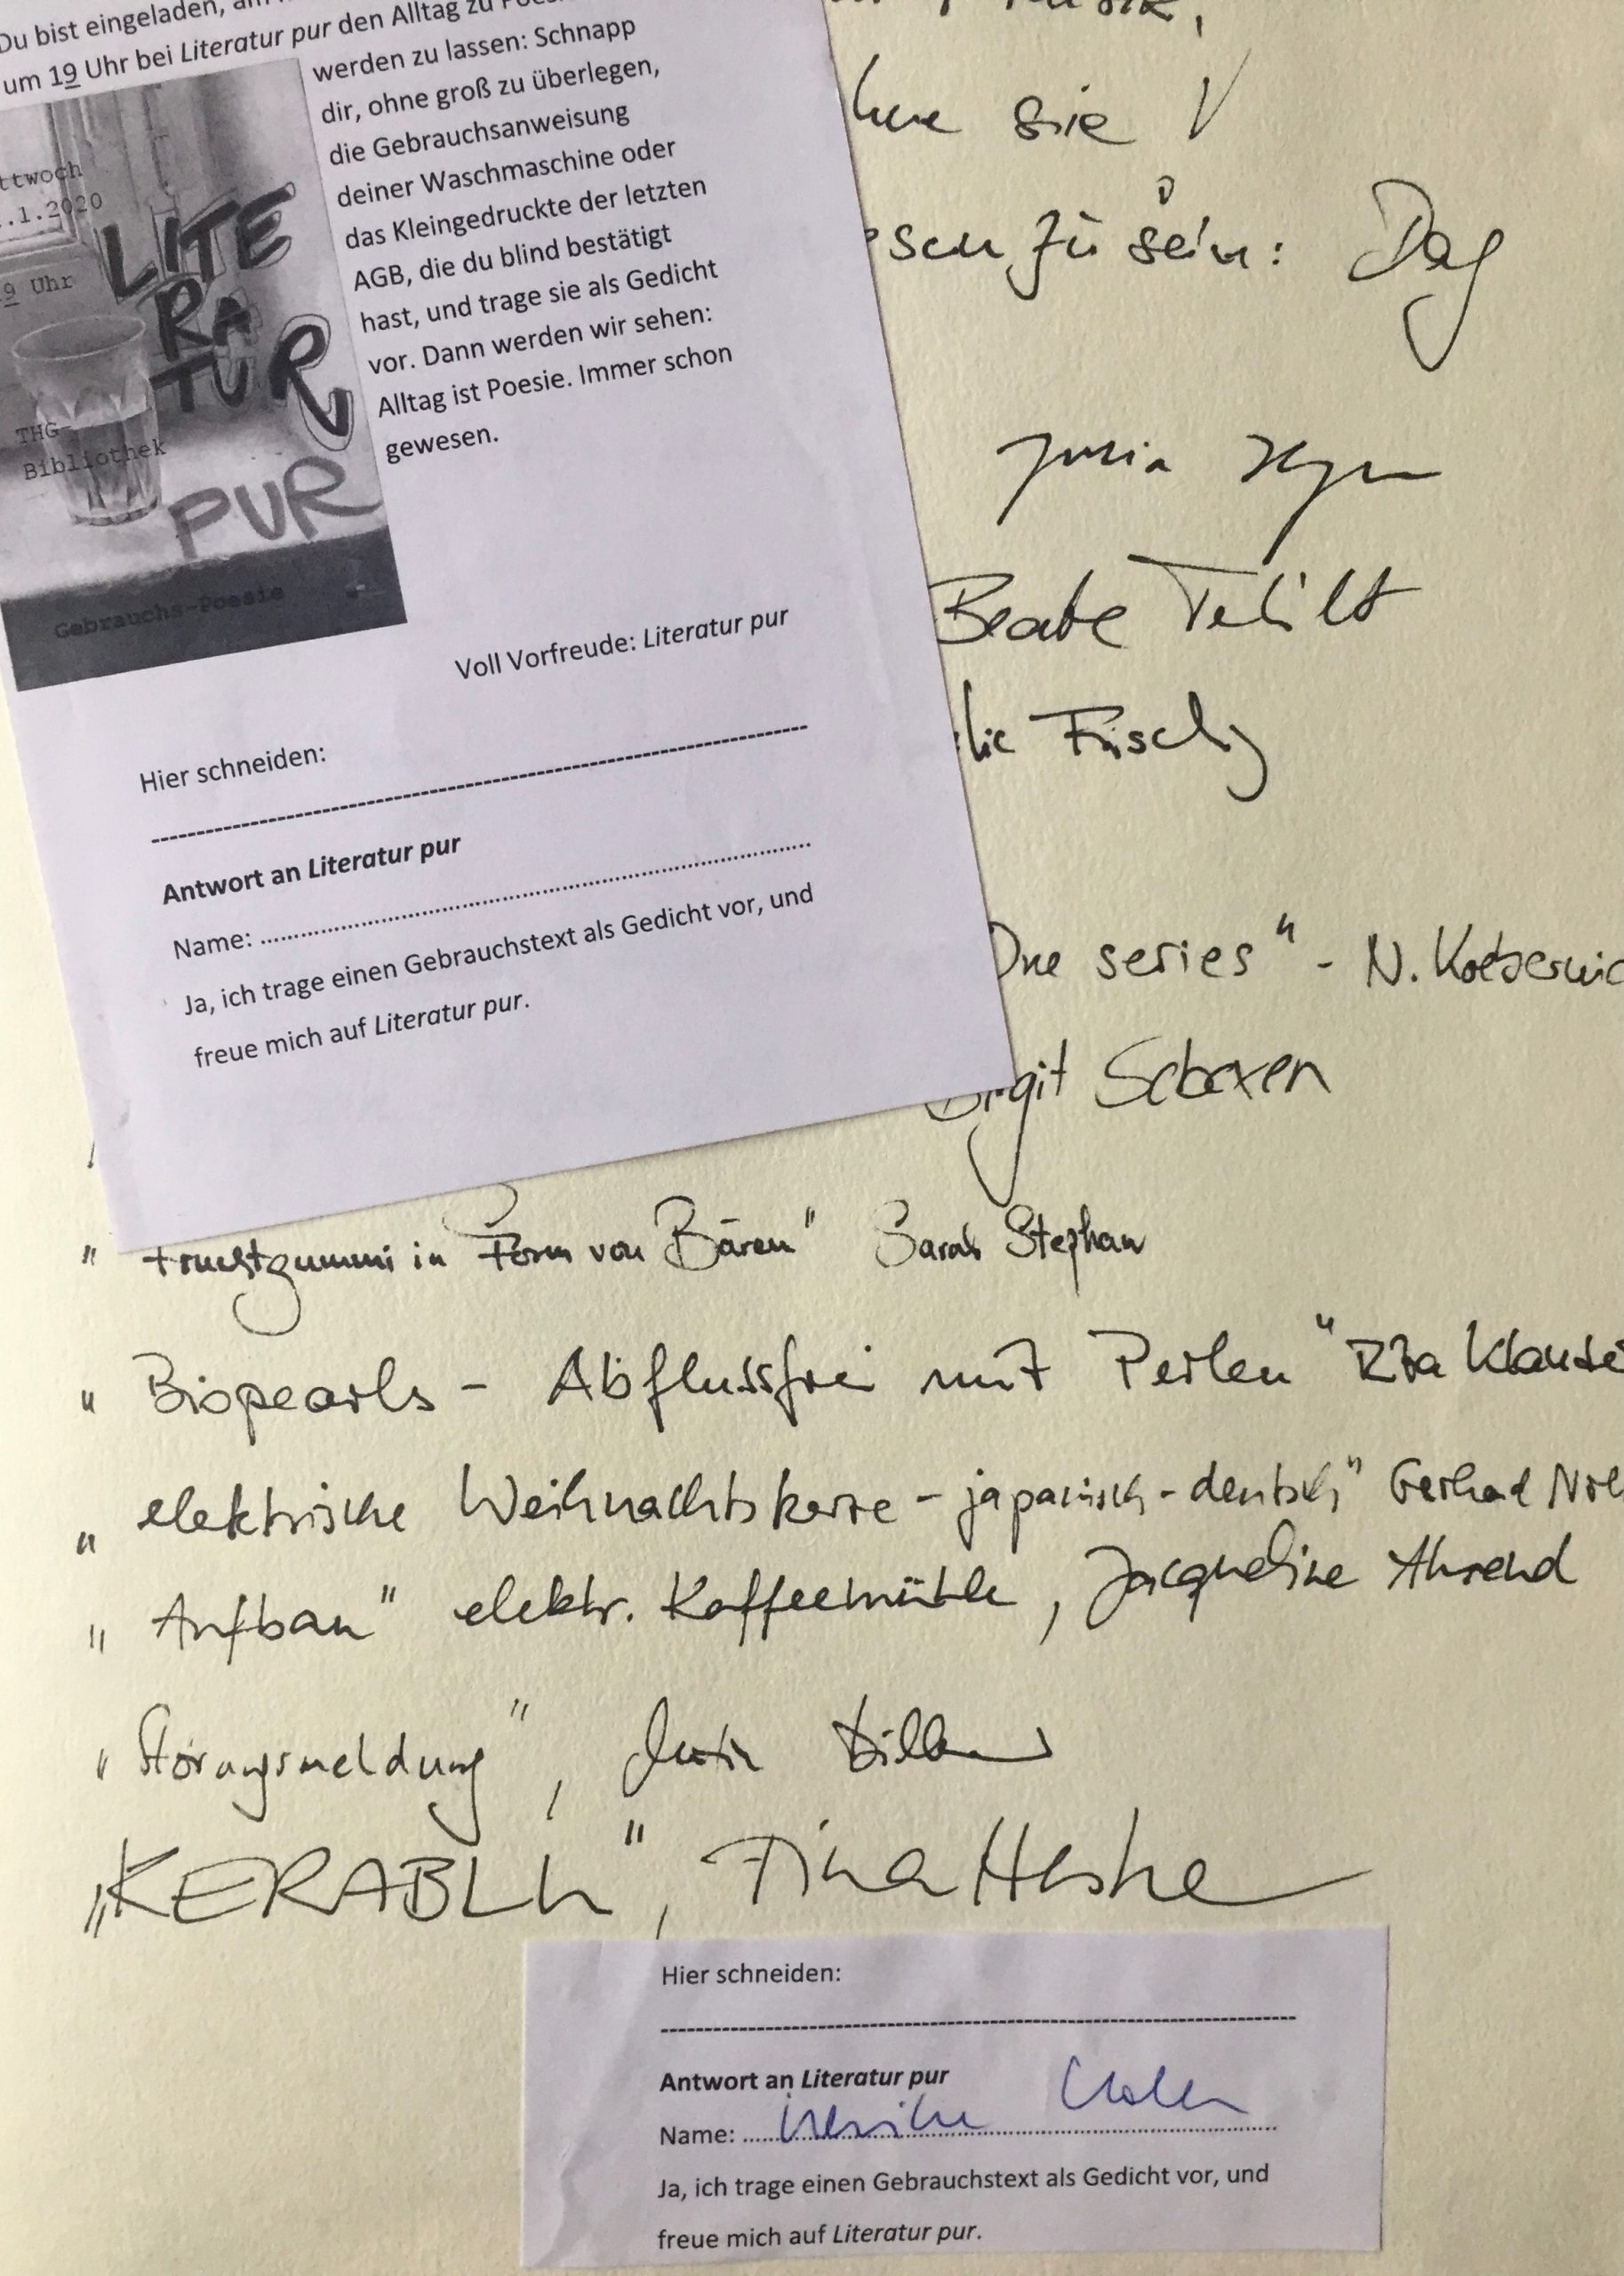 Du bist eingeladen, am
um 19 Uhr bei Literatur pur den Alltag zu
werden zu lassen: Schnapp
dir, ohne groß zu überlegen,
die Gebrauchsanweisung
deiner Waschmaschine oder
das Kleingedruckte der letzten
AGB, die du blind bestätigt
hast, und trage sie als Gedicht
vor. Dann werden wir sehen:
Alltag ist Poesie. Immer schon
gewesen.
ttwoch
.1.2020
9 Uhr
LITE
RA
TUR
PUR
THG-
Bibliothek
Gebrauchs-Poesie
Voll Vorfreude: Literatur pur
Hier schneiden:
Antwort an Literatur pur
Name:
Ja, ich trage einen Gebrauchstext als Gedicht vor, und
freue mich auf Literatur pur.
sie
sen zu sein: Dag
Julia
Beate
lie Frisch
One series" - N.
Birgit Schexen
" Fruchtgummi in Form von Bären" Sarah Stephan
" Biopearls - Abflussfrei mit Perlen" Rita
" elektrische Weihnachtskerze - japanisch-deutsch" Gerhard
„ Aufbau" elektr. Kaffeemühle, Jacqueline Ahrend
" Störungsmeldung",
„KERABLL", Tina
Hier schneiden:
Antwort an Literatur pur
Name: Ulrike
Ja, ich trage einen Gebrauchstext als Gedicht vor, und
freue mich auf Literatur pur.